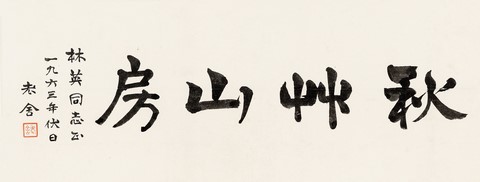 秋艸山房
林英同志正
一九六三年伏日
老舍